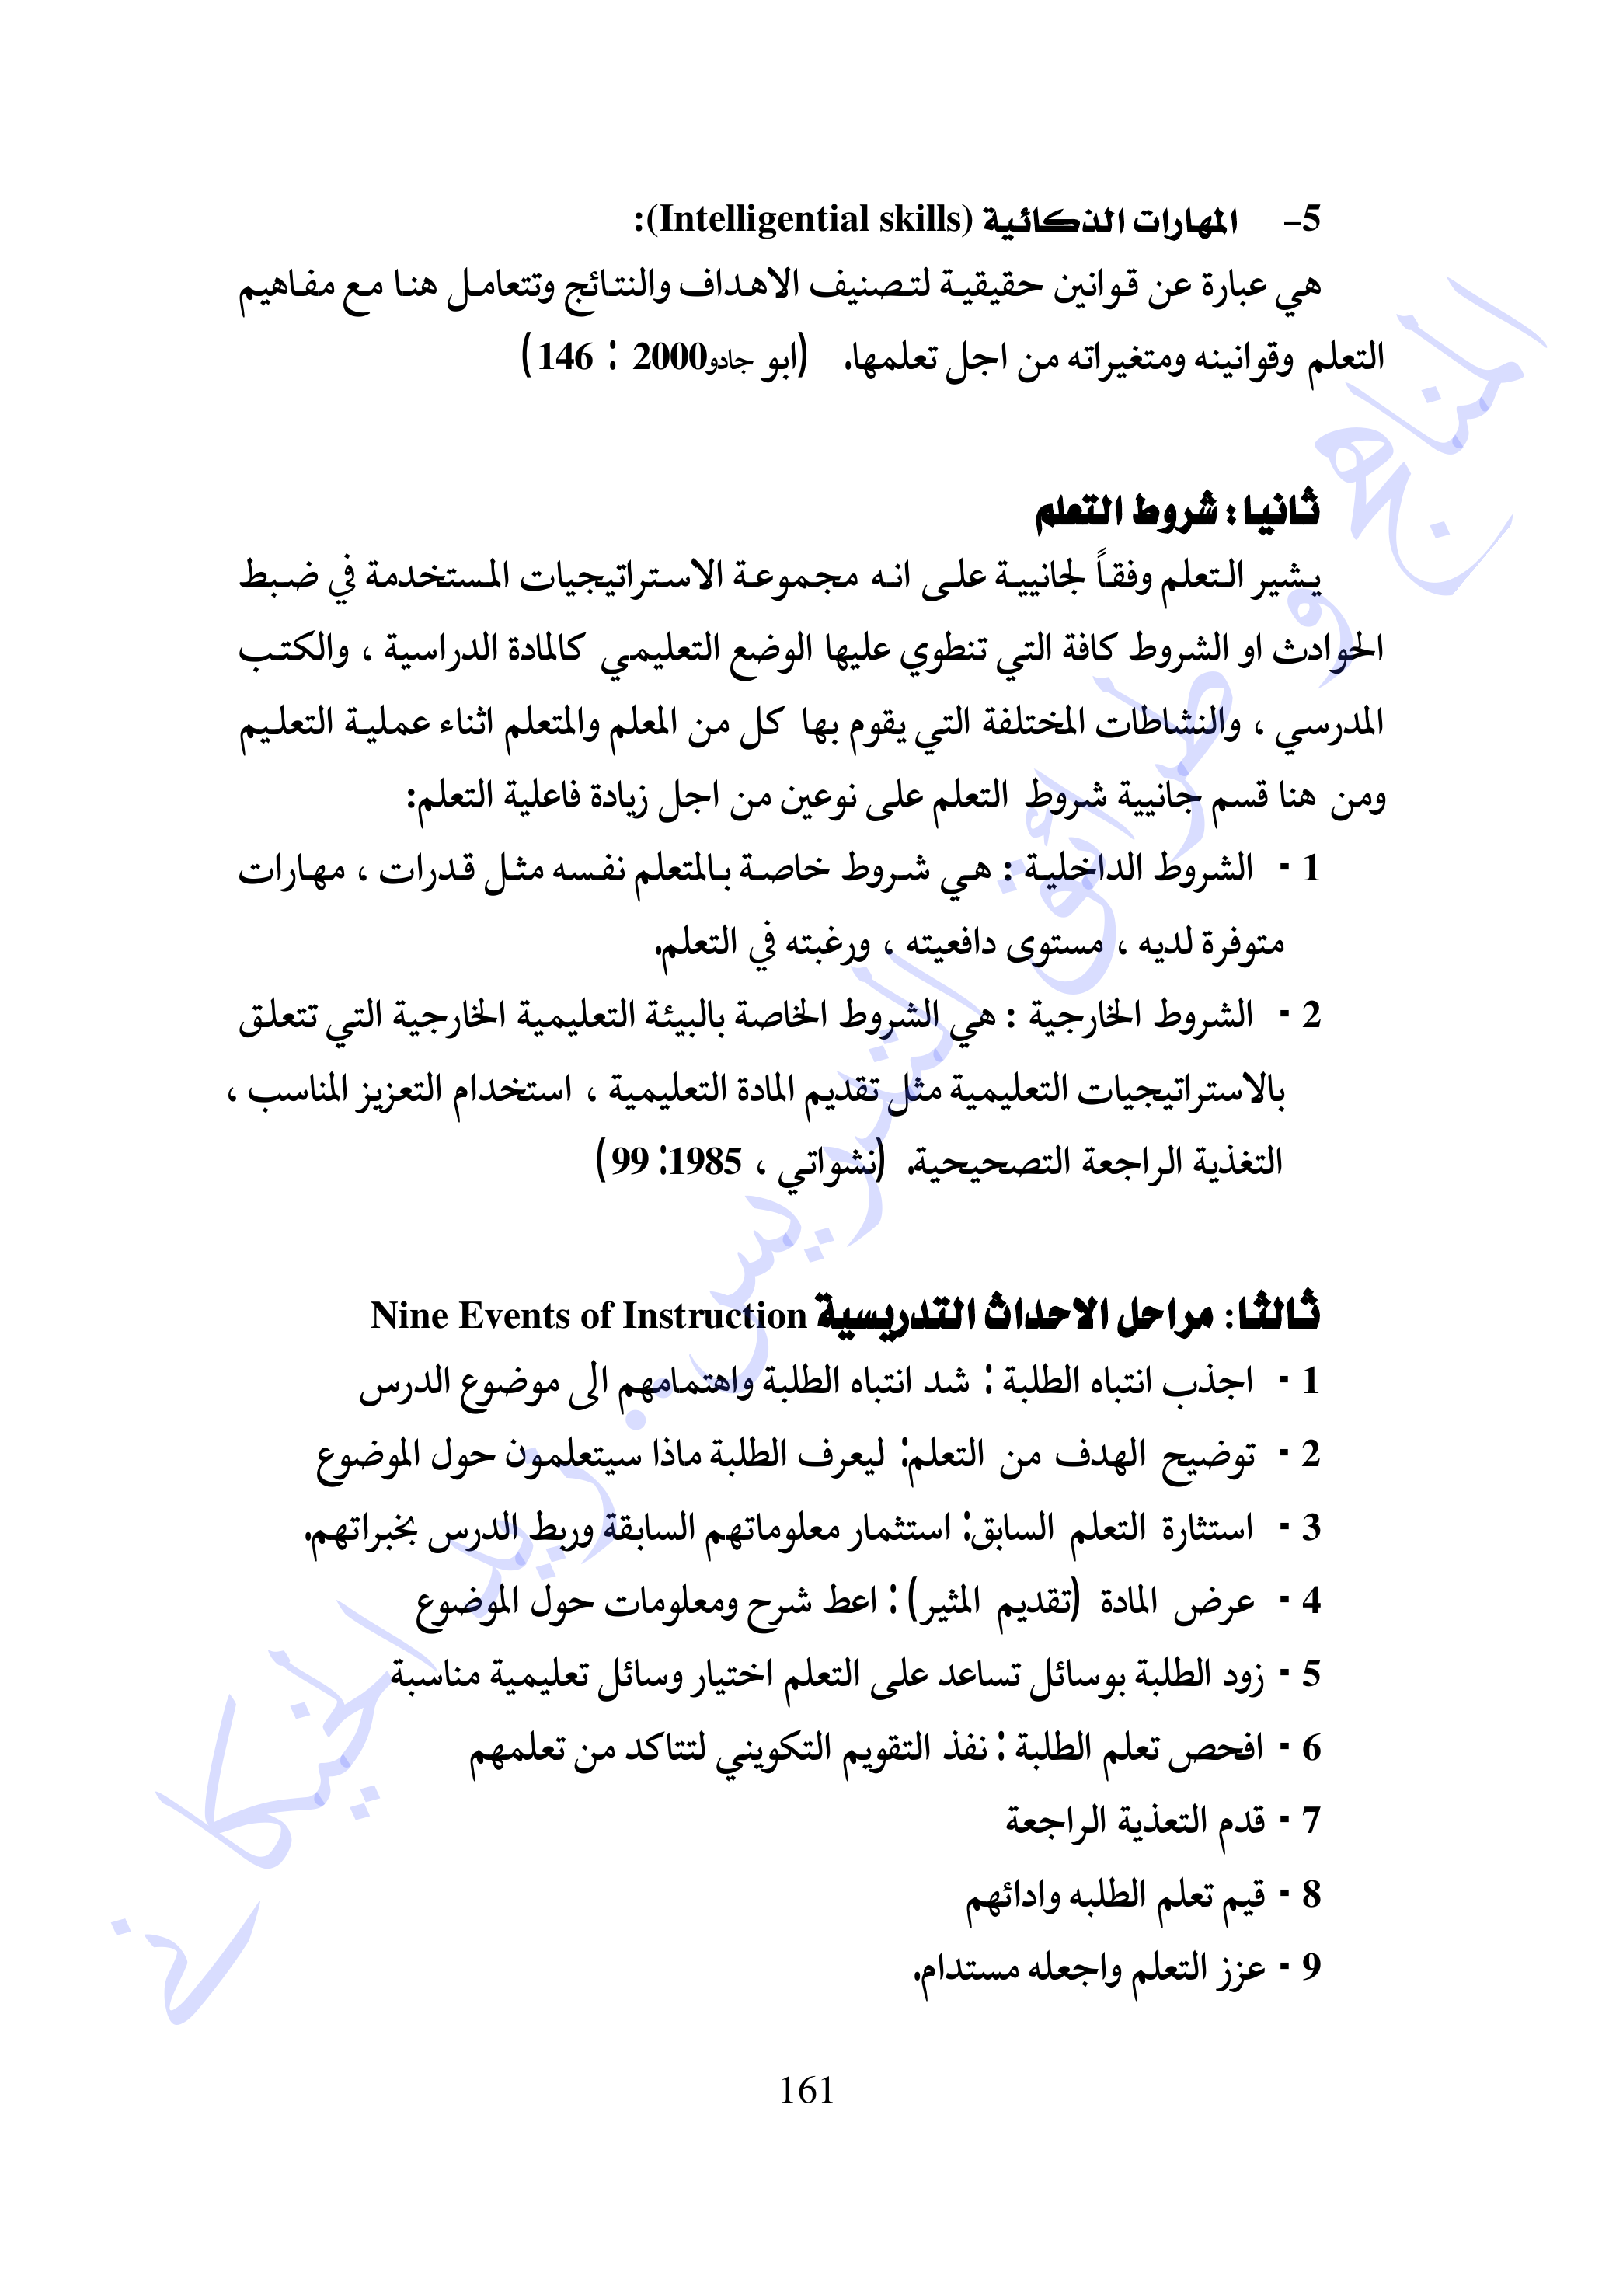 5- المهارات الذكائية (Intelligential skills):
هي عبارة عن قوانين حقيقية لتصنيف الاهداف والنتائج وتتعامل هنا مع مفاهيم
التعلم وقوانينه ومتغيراته من اجل تعلمها. (ابو جادو2000 : 146)
ثانيا : شروط التعلم
يشير التعلم وفقاً لجانييه على انه مجموعة الاستراتيجيات المستخدمة في ضبط
الحوادث او الشروط كافة التي تنطوي عليها الوضع التعليمي كالمادة الدراسية ، والكتب
المدرسي ، والنشاطات المختلفة التي يقوم بها كل من المعلم والمتعلم اثناء عملية التعليم
ومن هنا قسم جانيية شروط التعلم على نوعين من اجل زيادة فاعلية التعلم:
1 - الشروط الداخلية : هي شروط خاصة بالمتعلم نفسه مثل قدرات ، مهارات
متوفرة لديه ، مستوى دافعيته ، ورغبته في التعلم.
2 - الشروط الخارجية : هي الشروط الخاصة بالبيئة التعليمية الخارجية التي تتعلق
بالاستراتيجيات التعليمية مثل تقديم المادة التعليمية ، استخدام التعزيز المناسب ،
التغذية الراجعة التصحيحية. (نشواتي ، 1985: 99)
ثالثا: مراحل الاحداث التدريسية Nine Events of Instruction
1 - اجذب انتباه الطلبة : شد انتباه الطلبة واهتمامهم الى موضوع الدرس
2 - توضيح الهدف من التعلم: ليعرف الطلبة ماذا سيتعلمون حول الموضوع
3 - استثارة التعلم السابق: استثمار معلوماتهم السابقة وربط الدرس بخبراتهم.
4 - عرض المادة (تقديم المثير) : اعط شرح ومعلومات حول الموضوع
5 - زود الطلبة بوسائل تساعد على التعلم اختيار وسائل تعليمية مناسبة
6 - افحص تعلم الطلبة : نفذ التقويم التكويني لتتاكد من تعلمهم
7 - قدم التعذية الراجعة
8 - قيم تعلم الطلبه وادائهم
9 - عزز التعلم واجعله مستدام.
161
المناهج و طرائق التدريس